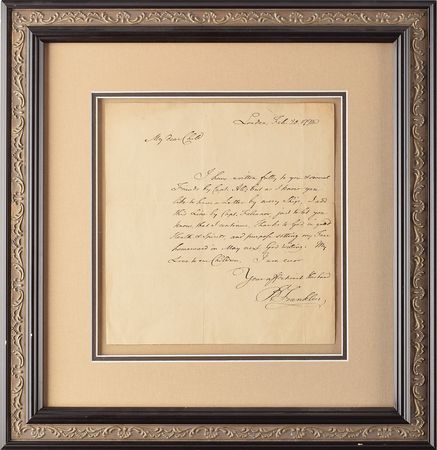 London, Feb. 20.
My dear Child
I have written fully to you & several
Friends by Capt. All; but as I know you
like to have a Letter by every Ship, I add
this Line by Capt. Falconer just to let you
know that I continue, Thanks to God in good
Health & Spirits, and purpose setting my Face
homeward in May next God willing. My
Love to our Children. I am ever
Your affectionate Husband
B Franklin